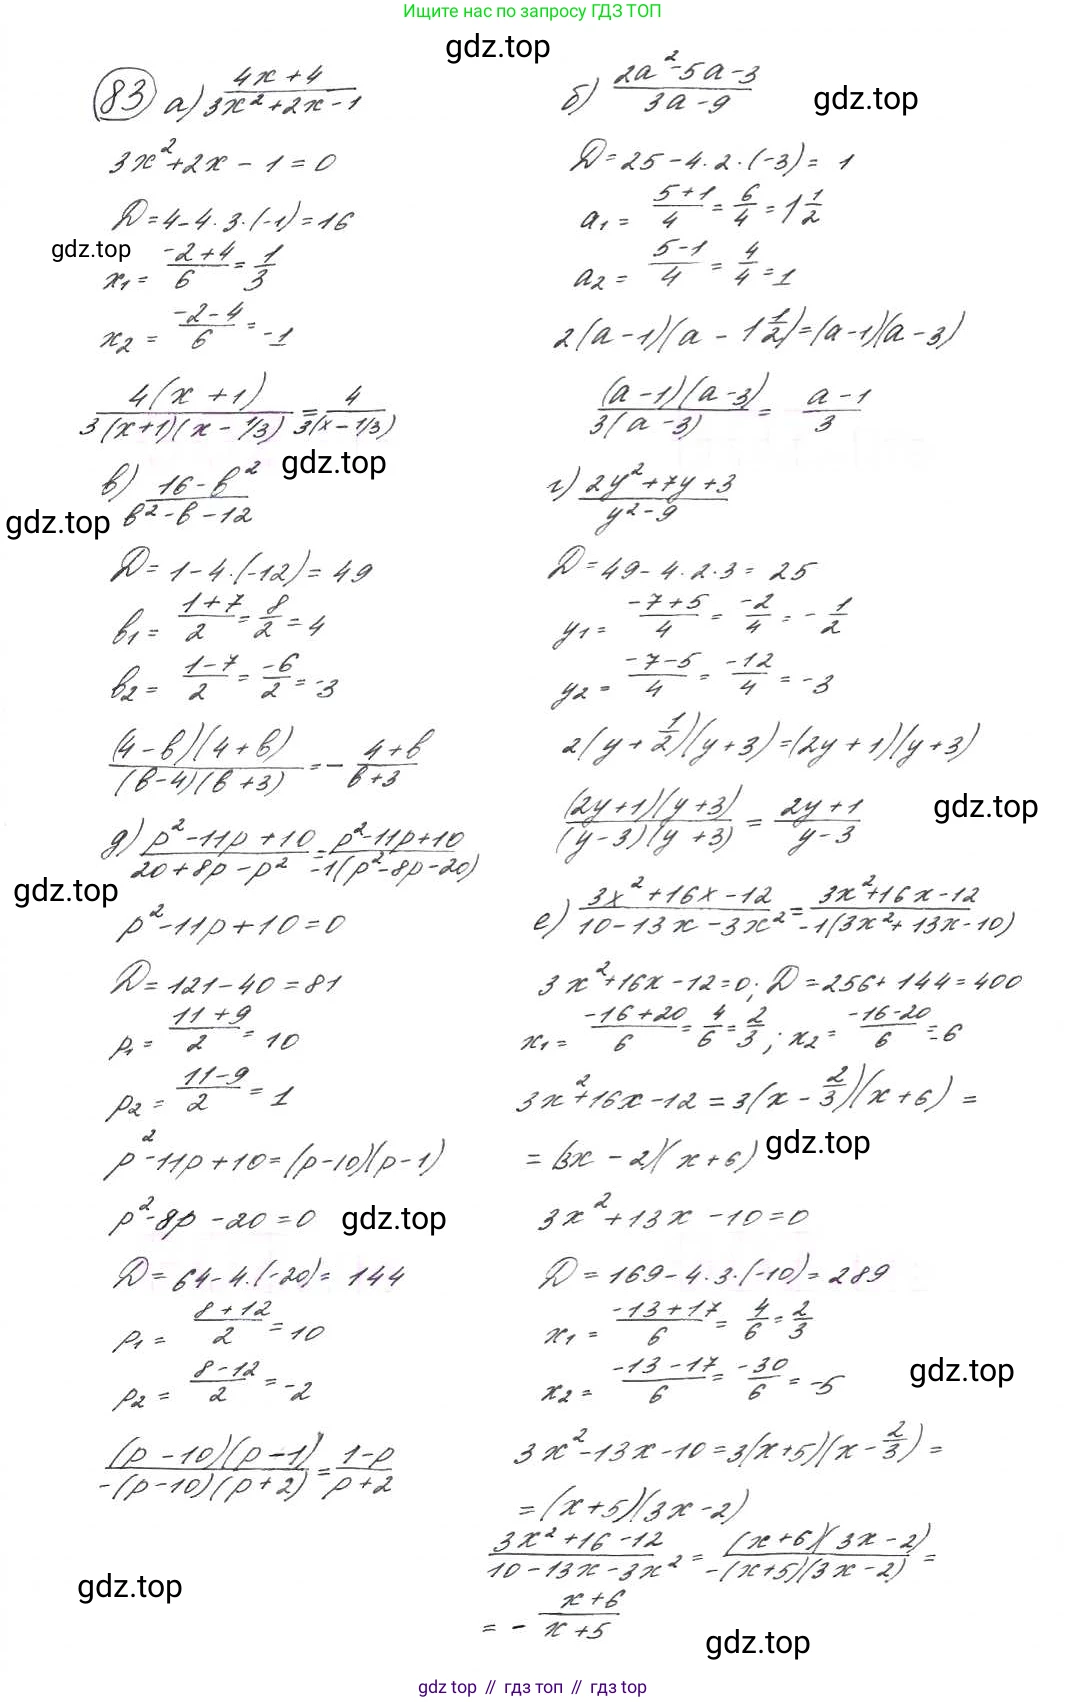 Ищите нас по запросу ГДЗ ТОП
gdz.top
83 а) (4x+4)/(3x²+2x-1)
3x²+2x-1=0
D=4-4·3·(-1)=16
gdz.top
x₁=(-2+4)/6=1/3
x₂=(-2-4)/6=-1
4(x+1)/(3(x+1)(x-1/3))=4/(3(x-1/3))
gdz.top
б) (2a²-5a-3)/(3a-9)
gdz.top
D=25-4·2·(-3)=1
a₁=(5+1)/4=6/4=1 1/2
a₂=(5-1)/4=4/4=1
2(a-1)(a-1 1/2)=(a-1)(a-3)
(a-1)(a-3)/(3(a-3))=(a-1)/3
в) (16-b²)/(b²-b-12)
gdz.top
D=1-4·(-12)=49
b₁=(1+7)/2=8/2=4
b₂=(1-7)/2=-6/2=-3
(4-b)(4+b)/((b-4)(b+3))=-(4+b)/(b+3)
г) (2y²+7y+3)/(y²-9)
D=49-4·2·3=25
y₁=(-7+5)/4=-2/4=-1/2
y₂=(-7-5)/4=-12/4=-3
2(y+1/2)(y+3)=(2y+1)(y+3)
(2y+1)(y+3)/((y-3)(y+3))=(2y+1)/(y-3)
gdz.top
д) (p²-11p+10)/(20+8p-p²)=(p²-11p+10)/(-1(p²-8p-20))
gdz.top
p²-11p+10=0
D=121-40=81
p₁=(11+9)/2=10
p₂=(11-9)/2=1
p²-11p+10=(p-10)(p-1)
p²-8p-20=0
gdz.top
D=64-4·(-20)=144
p₁=(8+12)/2=10
p₂=(8-12)/2=-2
(p-10)(p-1)/(-(p-10)(p+2))=(1-p)/(p+2)
gdz.top
е) (3x²+16x-12)/(10-13x-3x²)=(3x²+16x-12)/(-1(3x²+13x-10))
3x²+16x-12=0; D=256+144=400
x₁=(-16+20)/6=4/6=2/3; x₂=(-16-20)/6=-6
3x²+16x-12=3(x-2/3)(x+6)=
=(3x-2)(x+6)
gdz.top
3x²+13x-10=0
D=169-4·3·(-10)=289
x₁=(-13+17)/6=4/6=2/3
x₂=(-13-17)/6=-30/6=-5
gdz.top
3x²-13x-10=3(x+5)(x-2/3)=
=(x+5)(3x-2)
(3x²+16-12)/(10-13x-3x²)=(x+6)(3x-2)/(-(x+5)(3x-2))=
=-(x+6)/(x+5)
gdz.top
gdz.top // гдз топ // gdz top